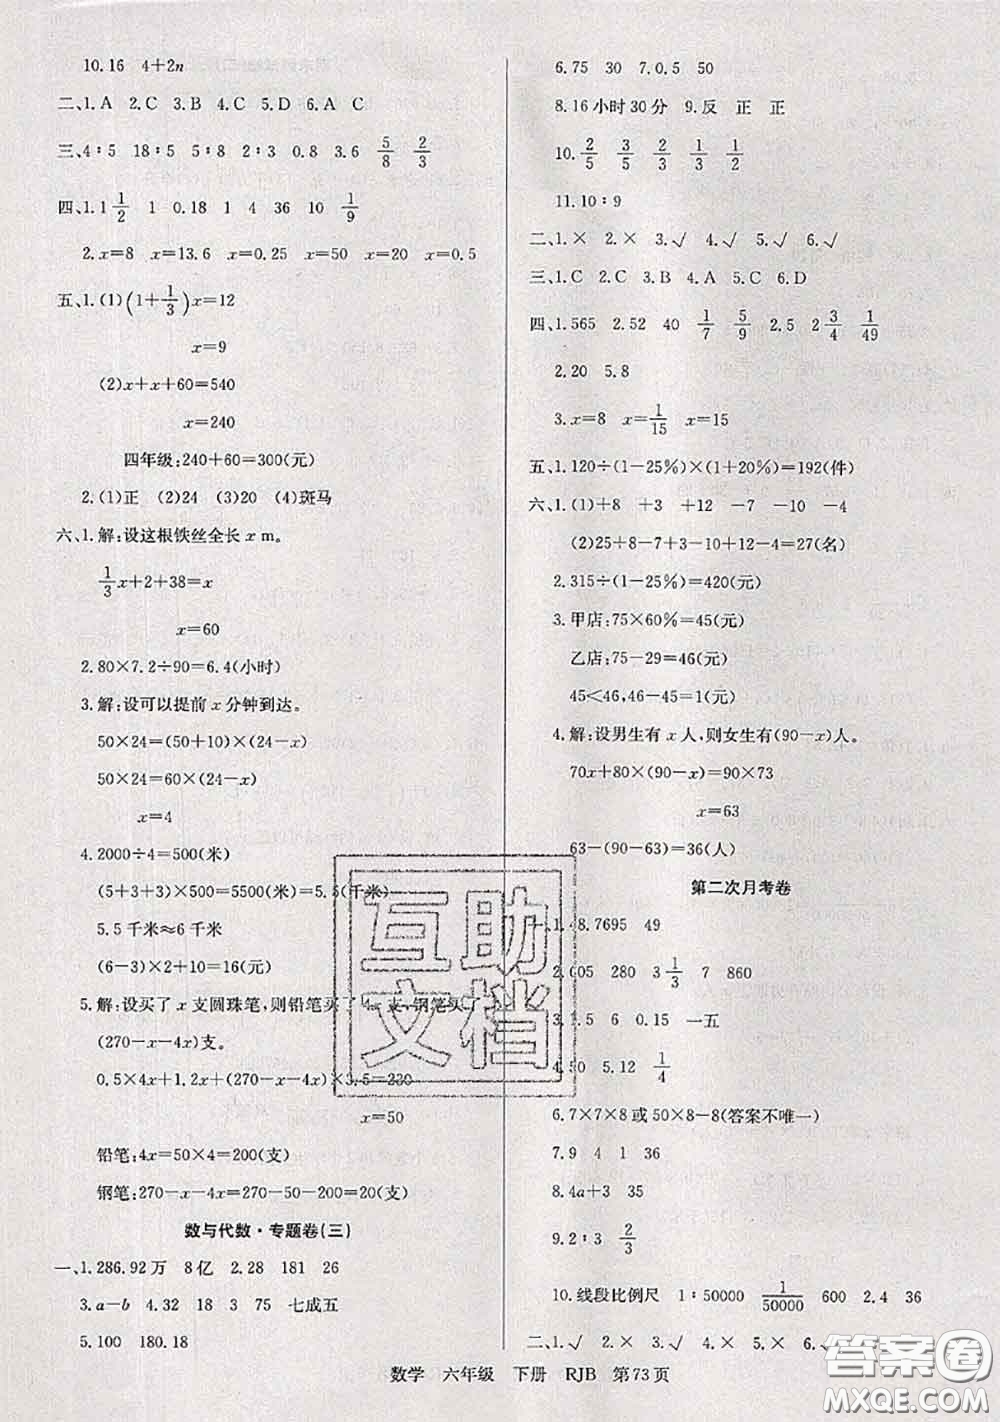 10.16 4+2n
二、1.A 2.C 3.B 4.C 5.D 6.A C
三、4∶5 18∶5 5∶8 2∶3 0.8 3.6 5/8 2/3
四、1.1 1/2 1 0.18 1 4 36 10 1/9
2.x=8 x=13.6 x=0.25 x=50 x=20 x=0.5
五、1.(1)(1+1/3)x=12
x=9
(2)x+x+60=540
x=240
四年级:240+60=300(元)
2.(1)正 (2)24 (3)20 (4)斑马
六、1.解:设这根铁丝全长 x m。
1/3x+2+38=x
x=60
2.80×7.2÷90=6.4(小时)
3.解:设可以提前 x 分钟到达。
50×24=(50+10)×(24-x)
50×24=60×(24-x)
x=4
4.2000÷4=500(米)
(5+3+3)×500=5500(米)=5.5(千米)
5.5 千米≈6 千米
(6-3)×2+10=16(元)
5.解:设买了 x 支圆珠笔,则铅笔买了 4x 支,钢笔买了
(270-x-4x)支。
0.5×4x+1.2x+(270-x-4x)×3.5=230
x=50
铅笔:4x=50×4=200(支)
钢笔:270-x-4x=270-50-200=20(支)
数与代数·专题卷(三)
一、1.286.92万 8亿 2.28 181 26
3.a-b 4.32 18 3 75 七成五
5.100 180.18
6.75 30 7.0.5 50
8.16小时30分 9.反 正 正
10.2/5 3/5 2/3 1/3 1/2
11.10∶9
二、1.× 2.× 3.√ 4.√ 5.√ 6.√
三、1.C 2.C 3.B 4.A 5.C 6.D
四、1.565 2.52 40 1/7 5/9 2.5 2 3/4 1/49
2.20 5.8
3.x=8 x=1/15 x=15
五、1.120÷(1-25%)×(1+20%)=192(件)
六、1.(1)+8 +3 +12 -7 -10 -4
(2)25+8-7+3-10+12-4=27(名)
2.315÷(1-25%)=420(元)
3.甲店:75×60%=45(元)
乙店:75-29=46(元)
45<46,46-45=1(元)
4.解:设男生有 x 人,则女生有(90-x)人。
70x+80×(90-x)=90×73
x=63
63-(90-63)=36(人)
第二次月考卷
一、1.48.7695 49
2.605 280 3 1/3 7 860
3.1.5 6 0.15 一五
4.50 5.12 1/4
6.7×7×8或50×8-8(答案不唯一)
7.9 4 1 36
8.4a+3 35
9.2∶3 2/3
10.线段比例尺 1∶50000 1/50000 600 2.4 36
二、1.√ 2.× 3.√ 4.× 5.× 6.√
数学 六年级 下册 RJB 第73页
互助
文档
答案圈
MXQE.COM